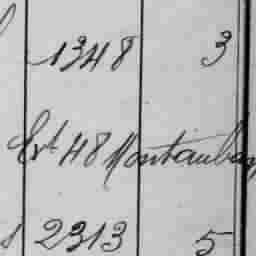 1348 3
Ert 48 Montauban
2313 5